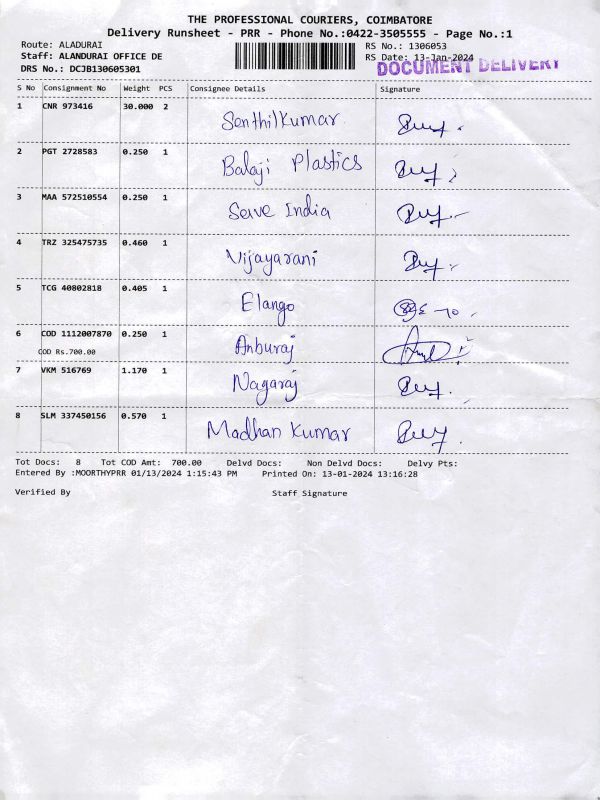 THE PROFESSIONAL COURIERS, COIMBATORE
Delivery Runsheet - PRR - Phone No.:0422-3505555 - Page No.:1
Route: ALADURAI RS No.: 1306053
Staff: ALANDURAI OFFICE DE RS Date: 13-Jan-2024
DOCUMENT DELIVERY
DRS No.: DCJB130605301
S No Consignment No Weight PCS Consignee Details Signature
1 CNR 973416 30.000 2 Senthilkumar
2 PGT 2728583 0.250 1 Balaji Plastics
3 MAA 572510554 0.250 1 Serve India
4 TRZ 325475735 0.460 1 Vijayarani
5 TCG 40802818 0.405 1 Elango
6 COD 1112007870 0.250 1 Anburaj
COD Rs.700.00
7 VKM 516769 1.170 1 Nagaraj
8 SLM 337450156 0.570 1 Madhan Kumar
Tot Docs: 8 Tot COD Amt: 700.00 Delvd Docs: Non Delvd Docs: Delvy Pts:
Entered By :MOORTHYPRR 01/13/2024 1:15:43 PM Printed On: 13-01-2024 13:16:28
Verified By Staff Signature